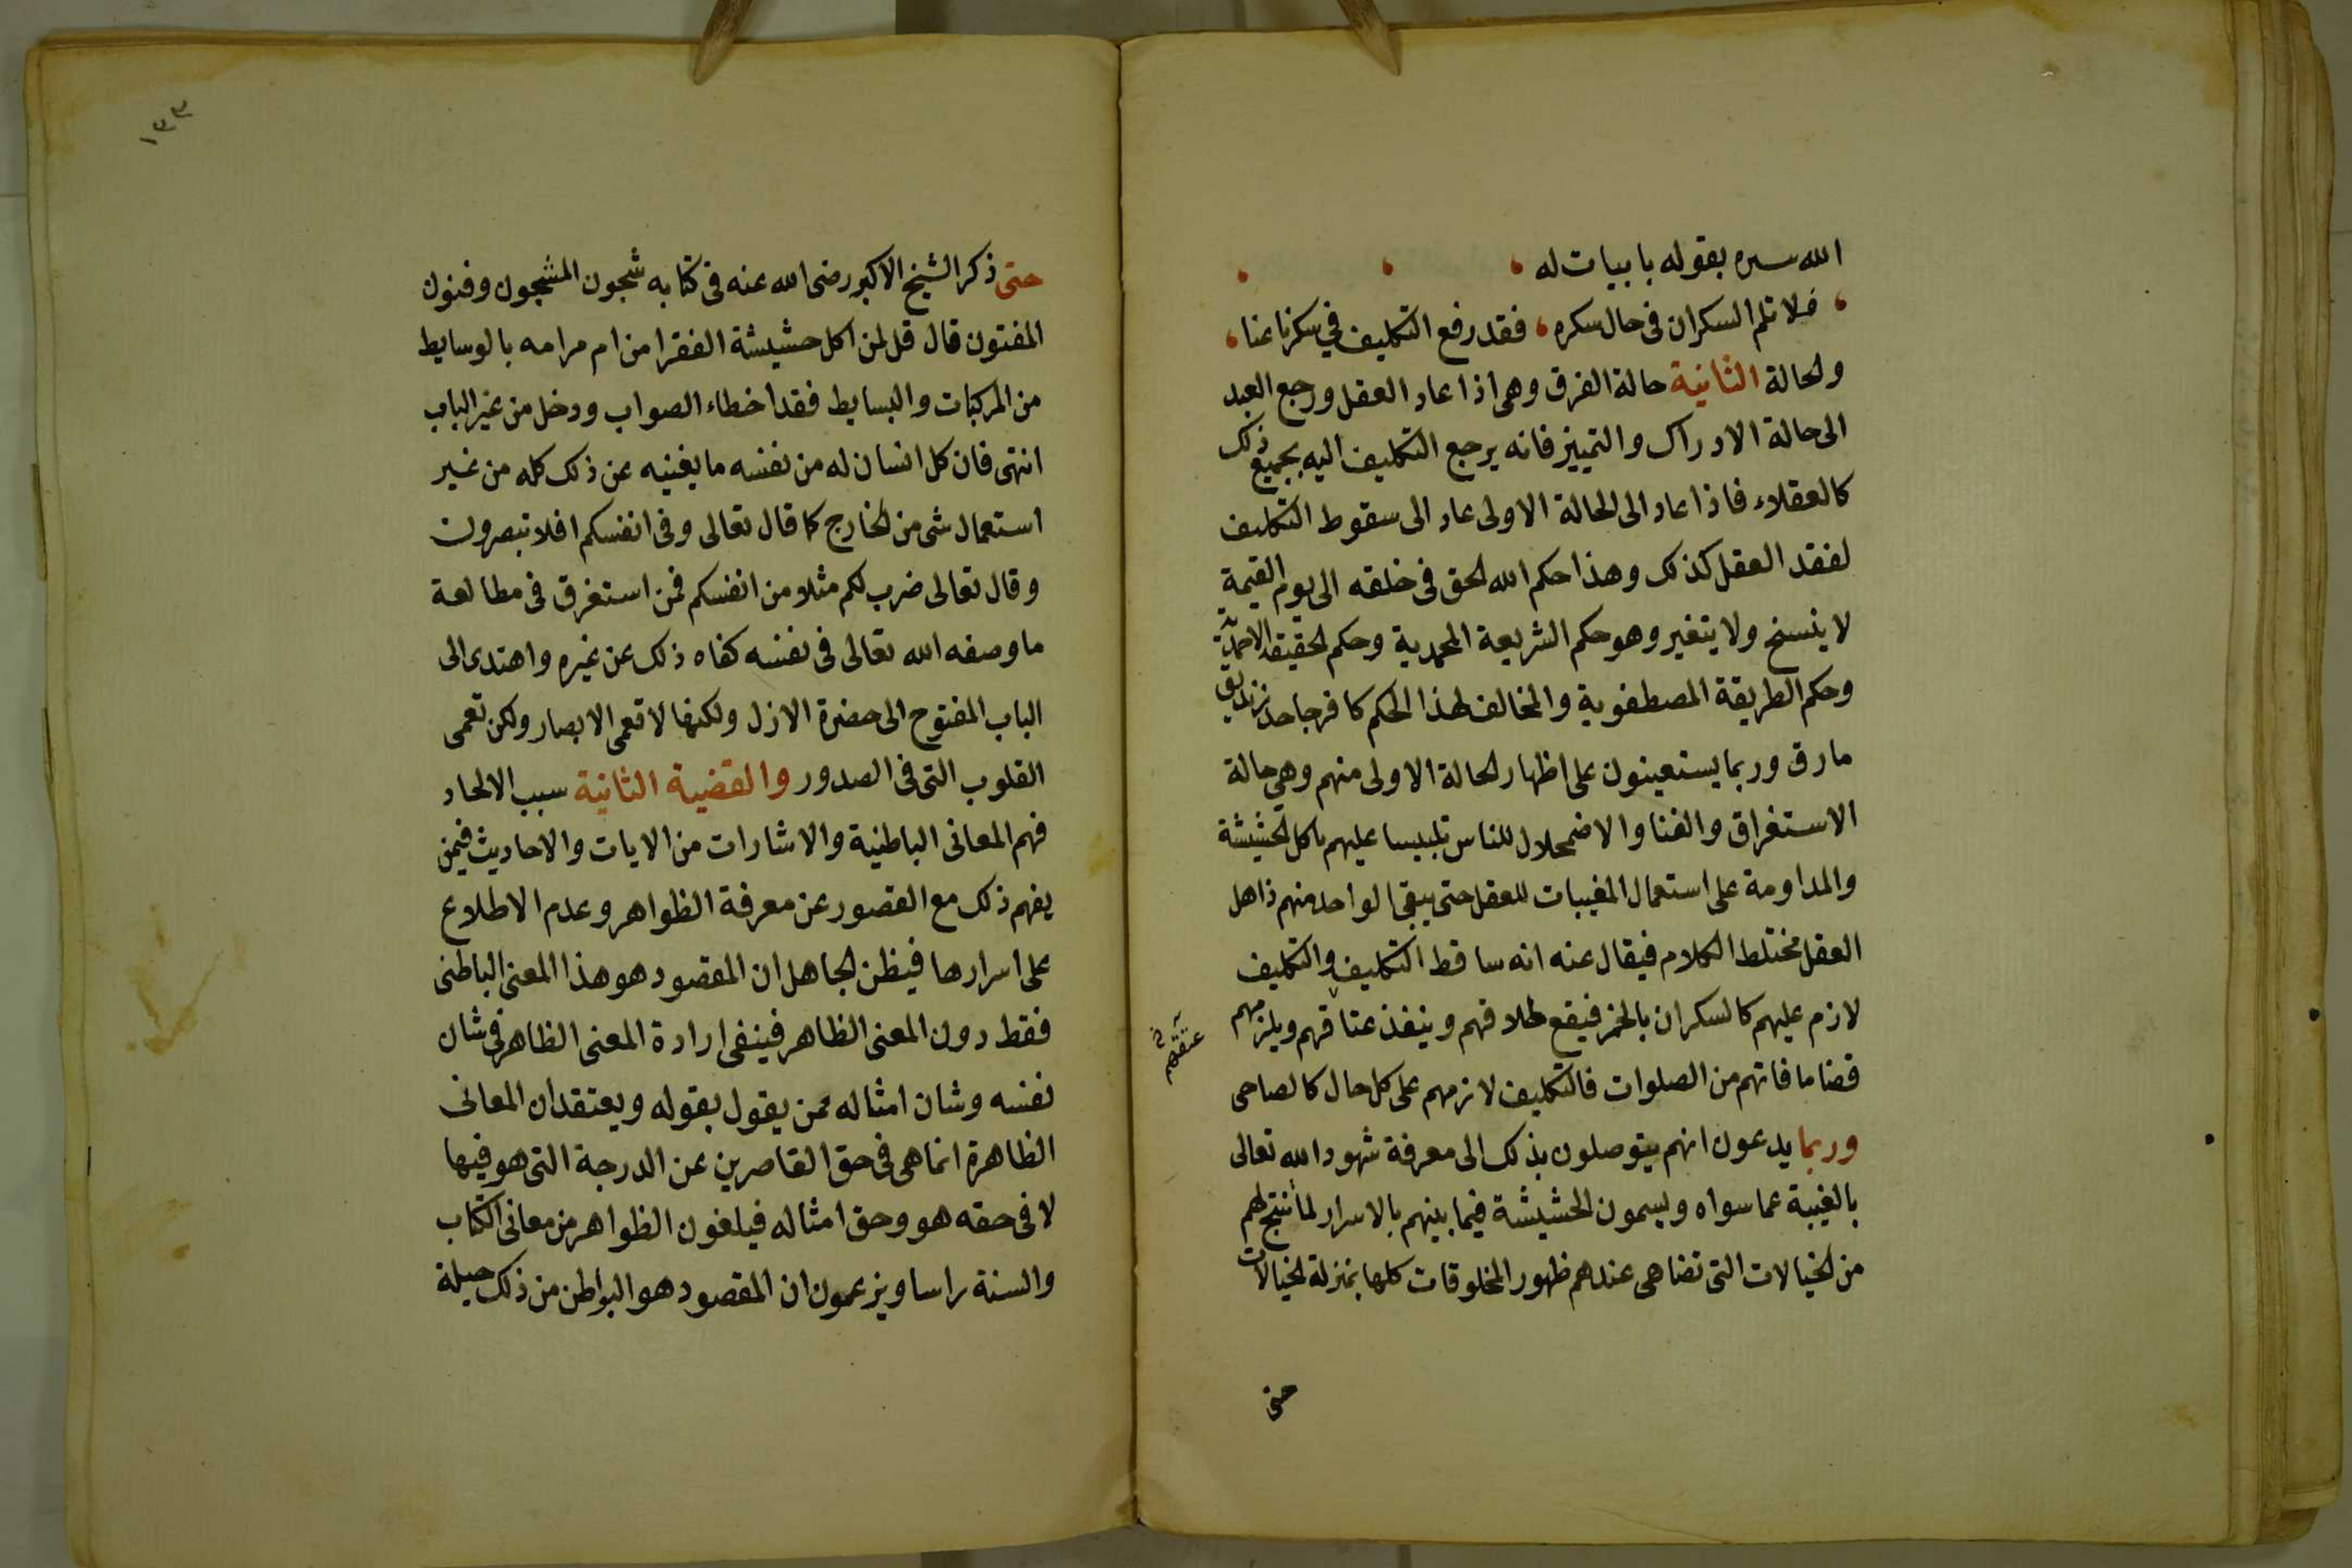 الله سره بقوله بابيات له
فلا تلم السكران فى حال سكره ، فقد رفع التكليف في سكرنا عنا ،
ولحالة الثانية حالة الفرق وهى اذا عاد العقل ورجع العبد
الى حالة الادراك والتمييز فانه يرجع التكليف اليه بجميع ذلك
كالعقلاء فاذا عاد الى الحالة الاولى عاد الى سقوط التكليف
لفقد العقل كذلك وهذا حكم الله الحق فى خلقه الى يوم القيمة
لا ينسخ ولا يتغير وهو حكم الشريعة المحمدية وحكم الحقيقة الاحمدية
وحكم الطريقة المصطفوية والمخالف لهذا الحكم كافر جاحد زنديق
مارق وربما يستعينون على اظهار الحالة الاولى منهم وهي حالة
الاستغراق والفنا والاضمحلال للناس تلبيسا عليهم باكل الحشيشة
والمداومة على استعمال المغيبات للعقل حتى يبقى الواحد منهم ذاهل
العقل مختلط الكلام فيقال عنه انه ساقط التكليف والتكليف
لازم عليهم كالسكران بالخمر فيقع طلاقهم وينفذ عتاقهم ويلزمهم
عتقهم
قضا ما فاتهم من الصلوات فالتكليف لازمهم على كل حال كالصاحى
وربما يدعون انهم يتوصلون بذلك الى معرفة شهود الله تعالى
بالغيبة عما سواه ويسمون الحشيشة فيما بينهم بالاسرار لما تنتج لهم
من الخيالات التى تضاهى عندهم ظهور المخلوقات كلها بمنزلة الخيالات
حتى
١٣٣
حتى ذكر الشيخ الاكبر رضى الله عنه فى كتابه شجون المشجون وفنون
المفتون قال قل لمن اكل حشيشة الفقرا من ام مرامه بالوسايط
من المركبات والبسايط فقد اخطاء الصواب ودخل من غير الباب
انتهى فان كل انسان له من نفسه ما يغنيه عن ذلك كله من غير
استعمال شى من الخارج كما قال تعالى وفى انفسكم افلا تبصرون
وقال تعالى ضرب لكم مثلا من انفسكم فمن استغرق فى مطالعة
ما وصفه الله تعالى فى نفسه كفاه ذلك عن غيره واهتدى الى
الباب المفتوح الى حضرة الازل ولكنها لا تعمى الابصار ولكن تعمى
القلوب التى فى الصدور والقضية الثانية سبب الالحاد
فهم المعانى الباطنية والاشارات من الايات والاحاديث فيمن
يفهم ذلك مع القصور عن معرفة الظواهر وعدم الاطلاع
على اسرارها فيظن الجاهل ان المقصود هو هذا المعنى الباطنى
فقط دون المعنى الظاهر فينفى ارادة المعنى الظاهر فى شان
نفسه وشان امثاله ممن يقول بقوله ويعتقد ان المعانى
الظاهرة انما هى فى حق القاصرين عن الدرجة التى هو فيها
لا فى حقه هو وحق امثاله فيلغون الظواهر من معانى الكتاب
والسنة راسا ويزعمون ان المقصود هو البواطن من ذلك حيلة